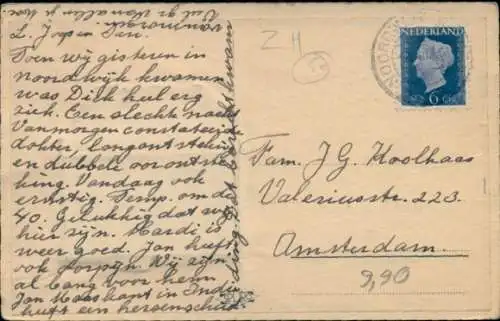 voormorgen.
Veel gr. van allen ja Moe.
L. J op en Tan.
Toen wij gisteren in
Noordwijk kwamen
was Dick heel erg
ziek. Een slechte nacht
Vanmorgen constateerde
dokter, longontsteking
en dubbele oorontste
king. Vandaag ook
ernstig. Temp. om de
40. Gelukkig dat wij
hier zijn. Hardi is
weer goed. Jan heeft
ook Wij zijn
al bang voor hem
Jan Maaskant in Indië
heeft een hersenschud
ding, net bericht kwam
Z H
NOORDW
NEDERLAND
6 CENT
Fam. J G. Koolhaas
Valeriusstr. 223.
Amsterdam.
9,90